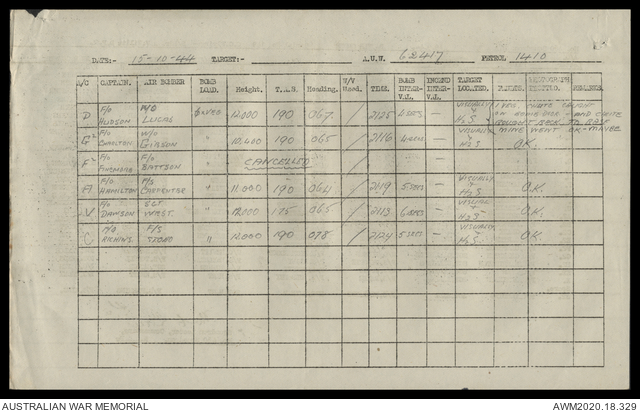 DATE:- 15-10-44 TARGET:- A.U.W. 62417 PETROL 1410
A/C CAPTAIN. AIR BOMBER BOMB LOAD. Height. T.A.S. Heading. W/V Used. TIME. BOMB INTER-VAL. INCEND INTER-VAL. TARGET LOCATED. REMARKS.
D F/O HUDSON F/O LUCAS 12,000 190 067 / 2125 5 SECS — VISUALLY + H2S
G² F/O CHARLTON W/O GIBSON " 10,400 190 065 / 2116 4 SECS — VISUALLY + H2S MINE WENT OK - MAYBE O.K.
F² F/O F/O BATTSON " CANCELLED / —
A F/O HAMILTON F/S CARPENTER " 11,000 190 064 / 2119 5 SECS — VISUALLY + H2S O.K.
V F/O DAWSON SGT WEST " 12,000 175 065 / 2113 6 SECS — VISUAL + H2S O.K.
C F/O F/S " 12,000 190 078 / 2124 5 SECS — VISUALLY + H2S O.K.
AUSTRALIAN WAR MEMORIAL AWM2020.18.329